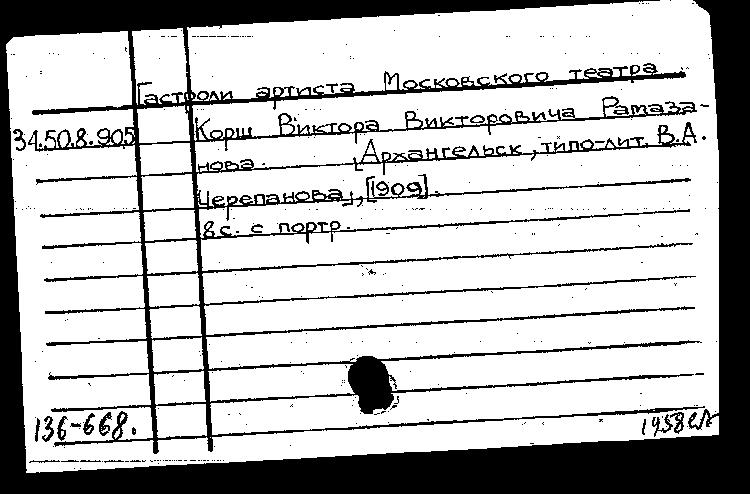 Гастроли артиста Московского театра
34.50.8.905 Корш Виктора Викторовича Рамаза-
нова. [Архангельск, типо-лит. В.А.
Черепанова], [1909].
8 с. с портр.
136-668.